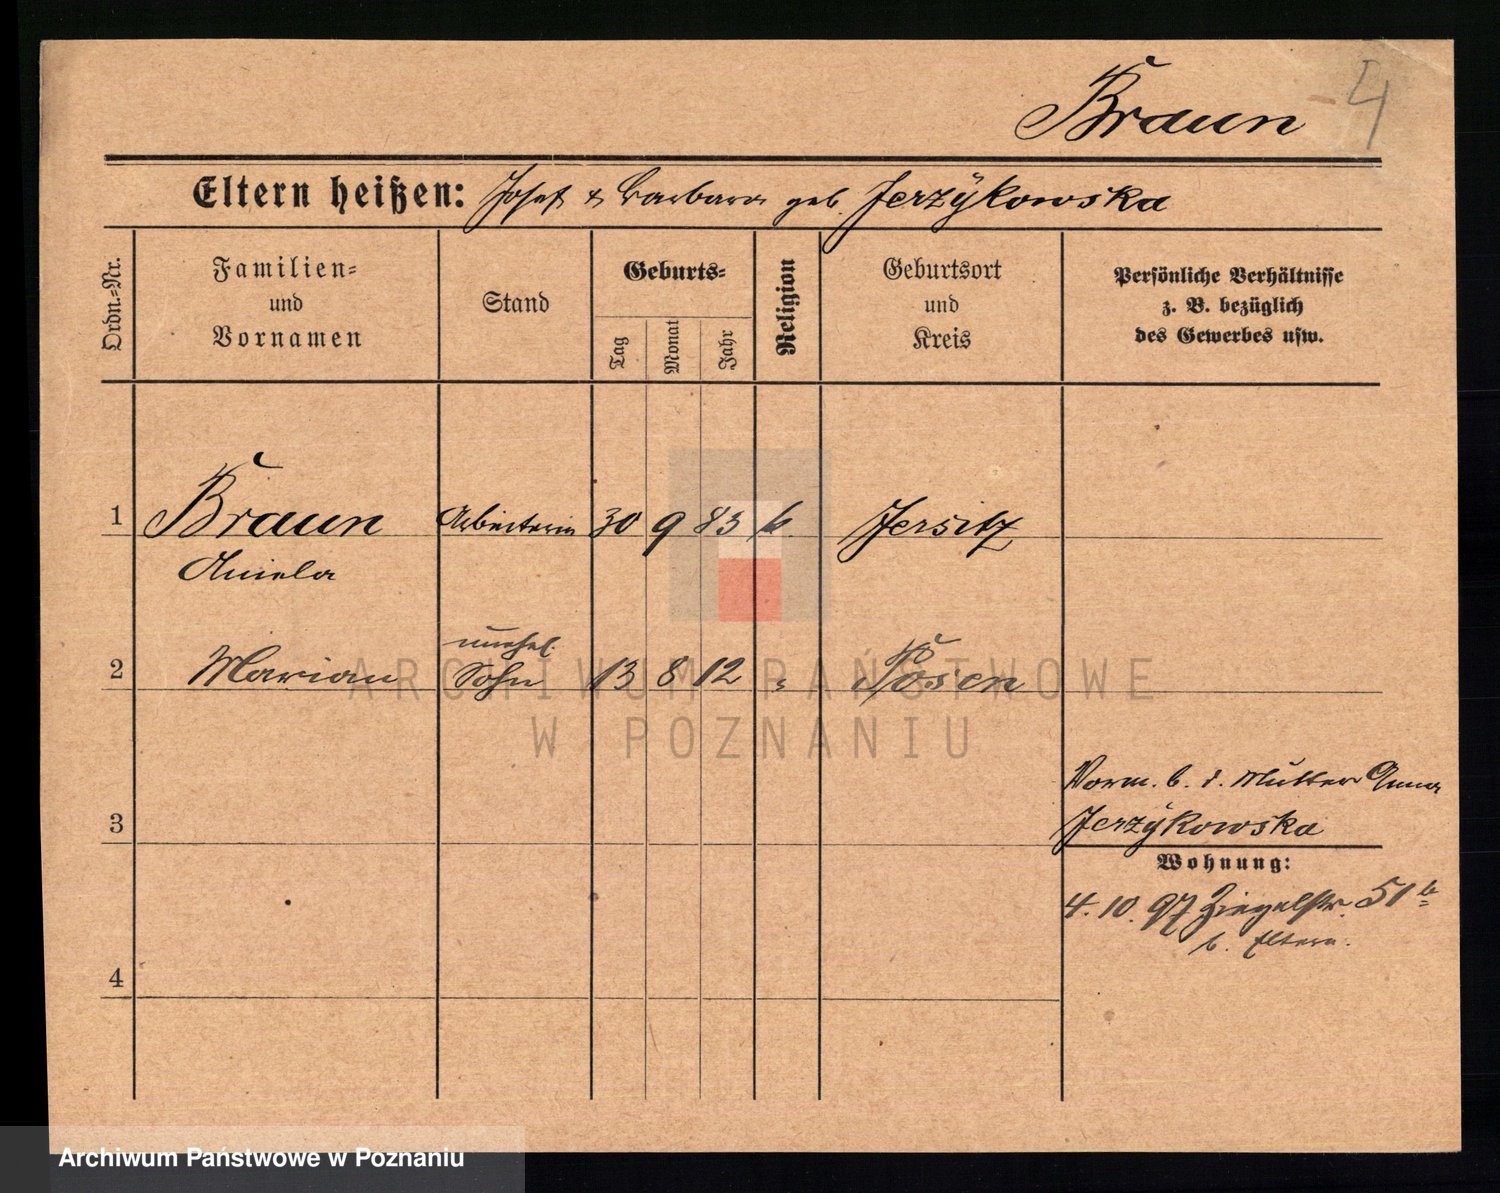 Braun
4
Eltern heißen: Josef & Barbara geb. Jerzÿkowska
Ordn.=Nr.
Familien=
und
Vornamen
Stand
Geburts=
Tag
Monat
Jahr
Religion
Geburtsort
und
Kreis
Persönliche Verhältnisse
z. B. bezüglich
des Gewerbes usw.
1 Braun Arbeiterin 30 9 83 k. Jersitz
Aniela
unehel.
2 Marian Sohn 13 8 12 " Posen
Vorm. b. d. Mutter Anna
3 Jerzÿkowska
Wohnung:
4. 10. 97 Ziegelstr. 51 b
b. Eltern.
4
ARCHIWUM PAŃSTWOWE
W POZNANIU
Archiwum Państwowe w Poznaniu